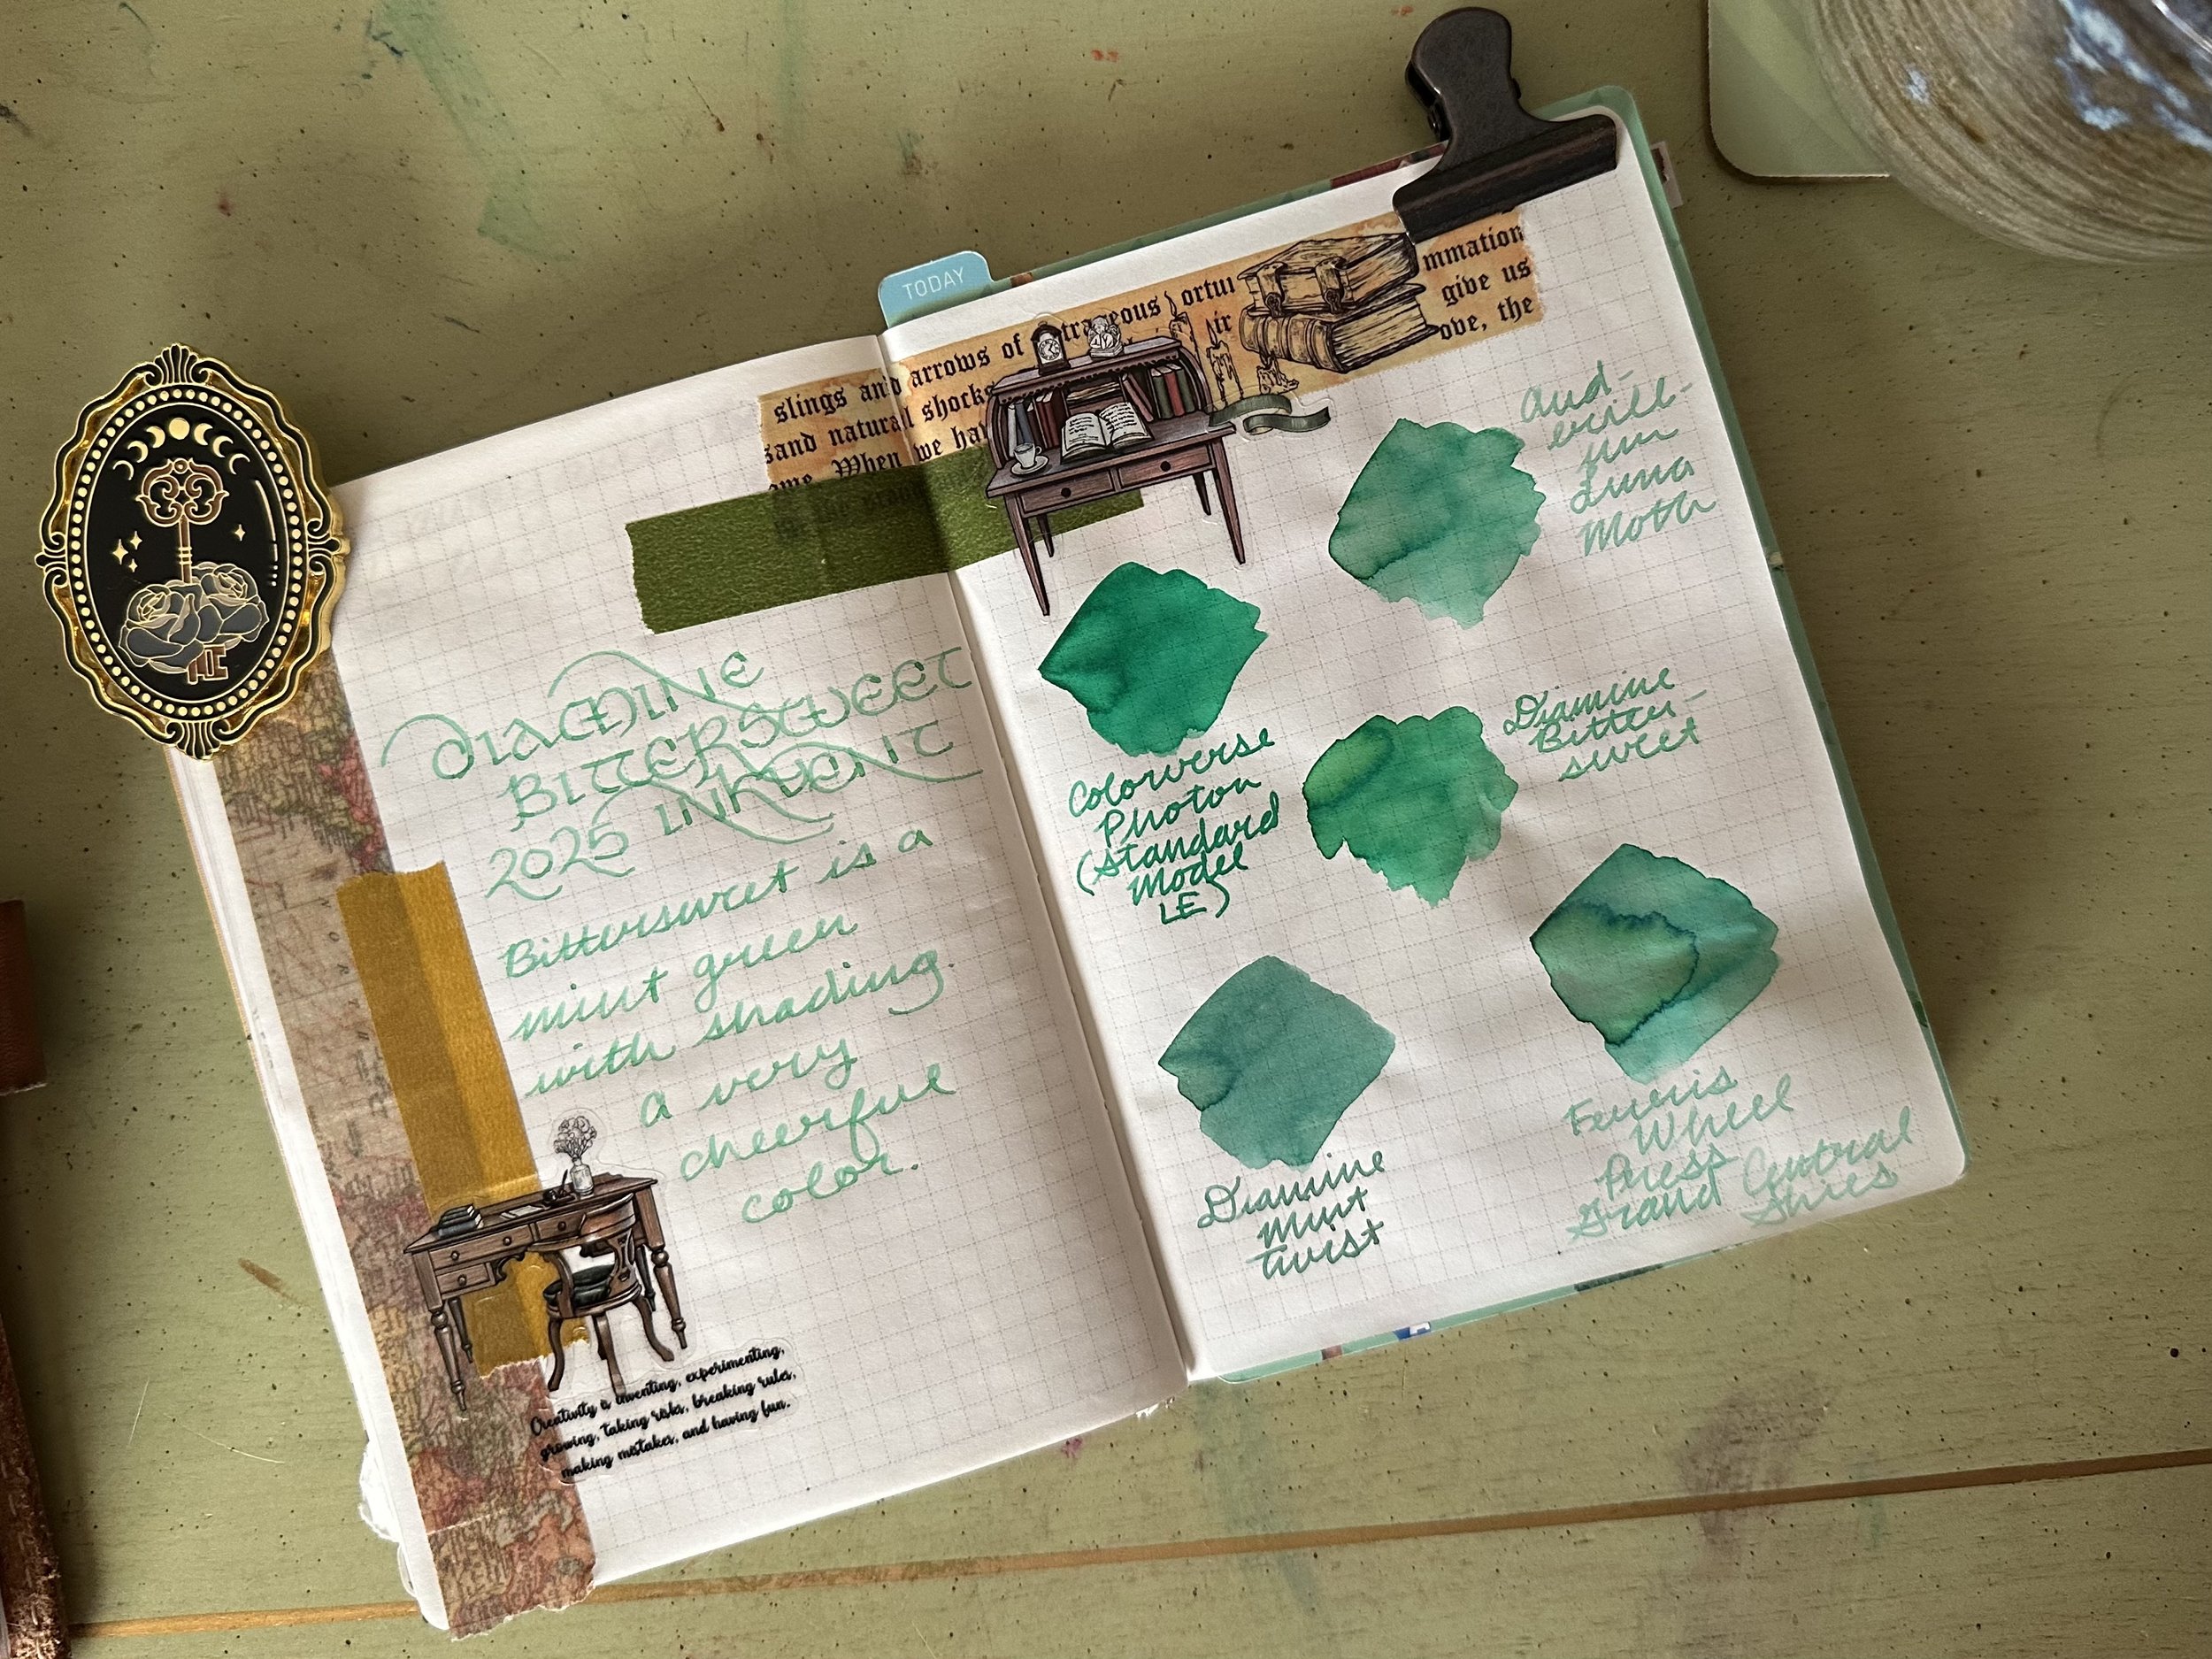 TODAY
slings and arrows of outrageous fortu
sand natural shocks
ome. When we hav
mmation
give us
ove, the
DIAMINE
BITTERSWEET
2025 INKVENT
Bittersweet is a
mint green
with shading.
A very
cheerful
color.
Creativity is inventing, experimenting,
growing, taking risks, breaking rules,
making mistakes, and having fun.
Colorverse
Photon
(Standard
Model
LE)
Luna
Moth
Diamine
Bitter-
sweet
Diamine
Mint
Twist
Ferris
Wheel
Press
Grand Central
Skies